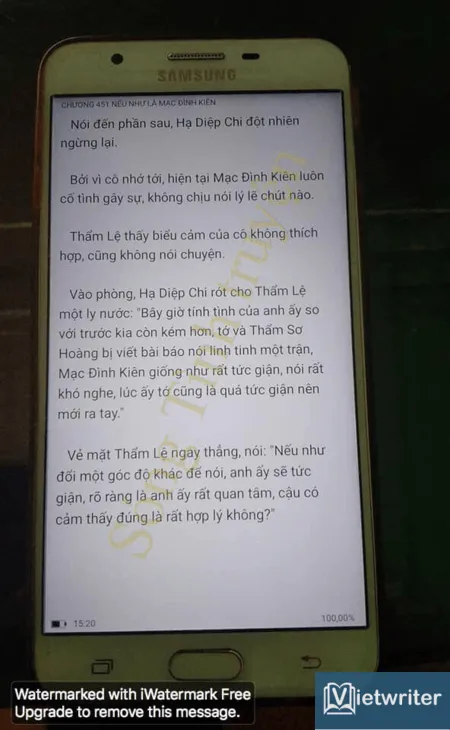 SAMSUNG
CHƯƠNG 451 NẾU NHƯ LÀ MẠC ĐÌNH KIÊN
Nói đến phần sau, Hạ Diệp Chi đột nhiên
ngừng lại.
Bởi vì cô nhớ tới, hiện tại Mạc Đình Kiên luôn
cố tình gây sự, không chịu nói lý lẽ chút nào.
Thẩm Lệ thấy biểu cảm của cô không thích
hợp, cũng không nói chuyện.
Vào phòng, Hạ Diệp Chi rót cho Thẩm Lệ
một ly nước: "Bây giờ tính tình của anh ấy so
với trước kia còn kém hơn, tớ và Thẩm Sơ
Hoàng bị viết bài báo nói linh tinh một trận,
Mạc Đình Kiên giống như rất tức giận, nói rất
khó nghe, lúc ấy tớ cũng là quá tức giận nên
mới ra tay."
Vẻ mặt Thẩm Lệ ngay thẳng, nói: "Nếu như
đổi một góc độ khác để nói, anh ấy sẽ tức
giận, rõ ràng là anh ấy rất quan tâm, cậu có
cảm thấy đúng là rất hợp lý không?"
Song Tinh truyện
15:20
100,00%
Watermarked with iWatermark Free
Upgrade to remove this message.
Vietwriter